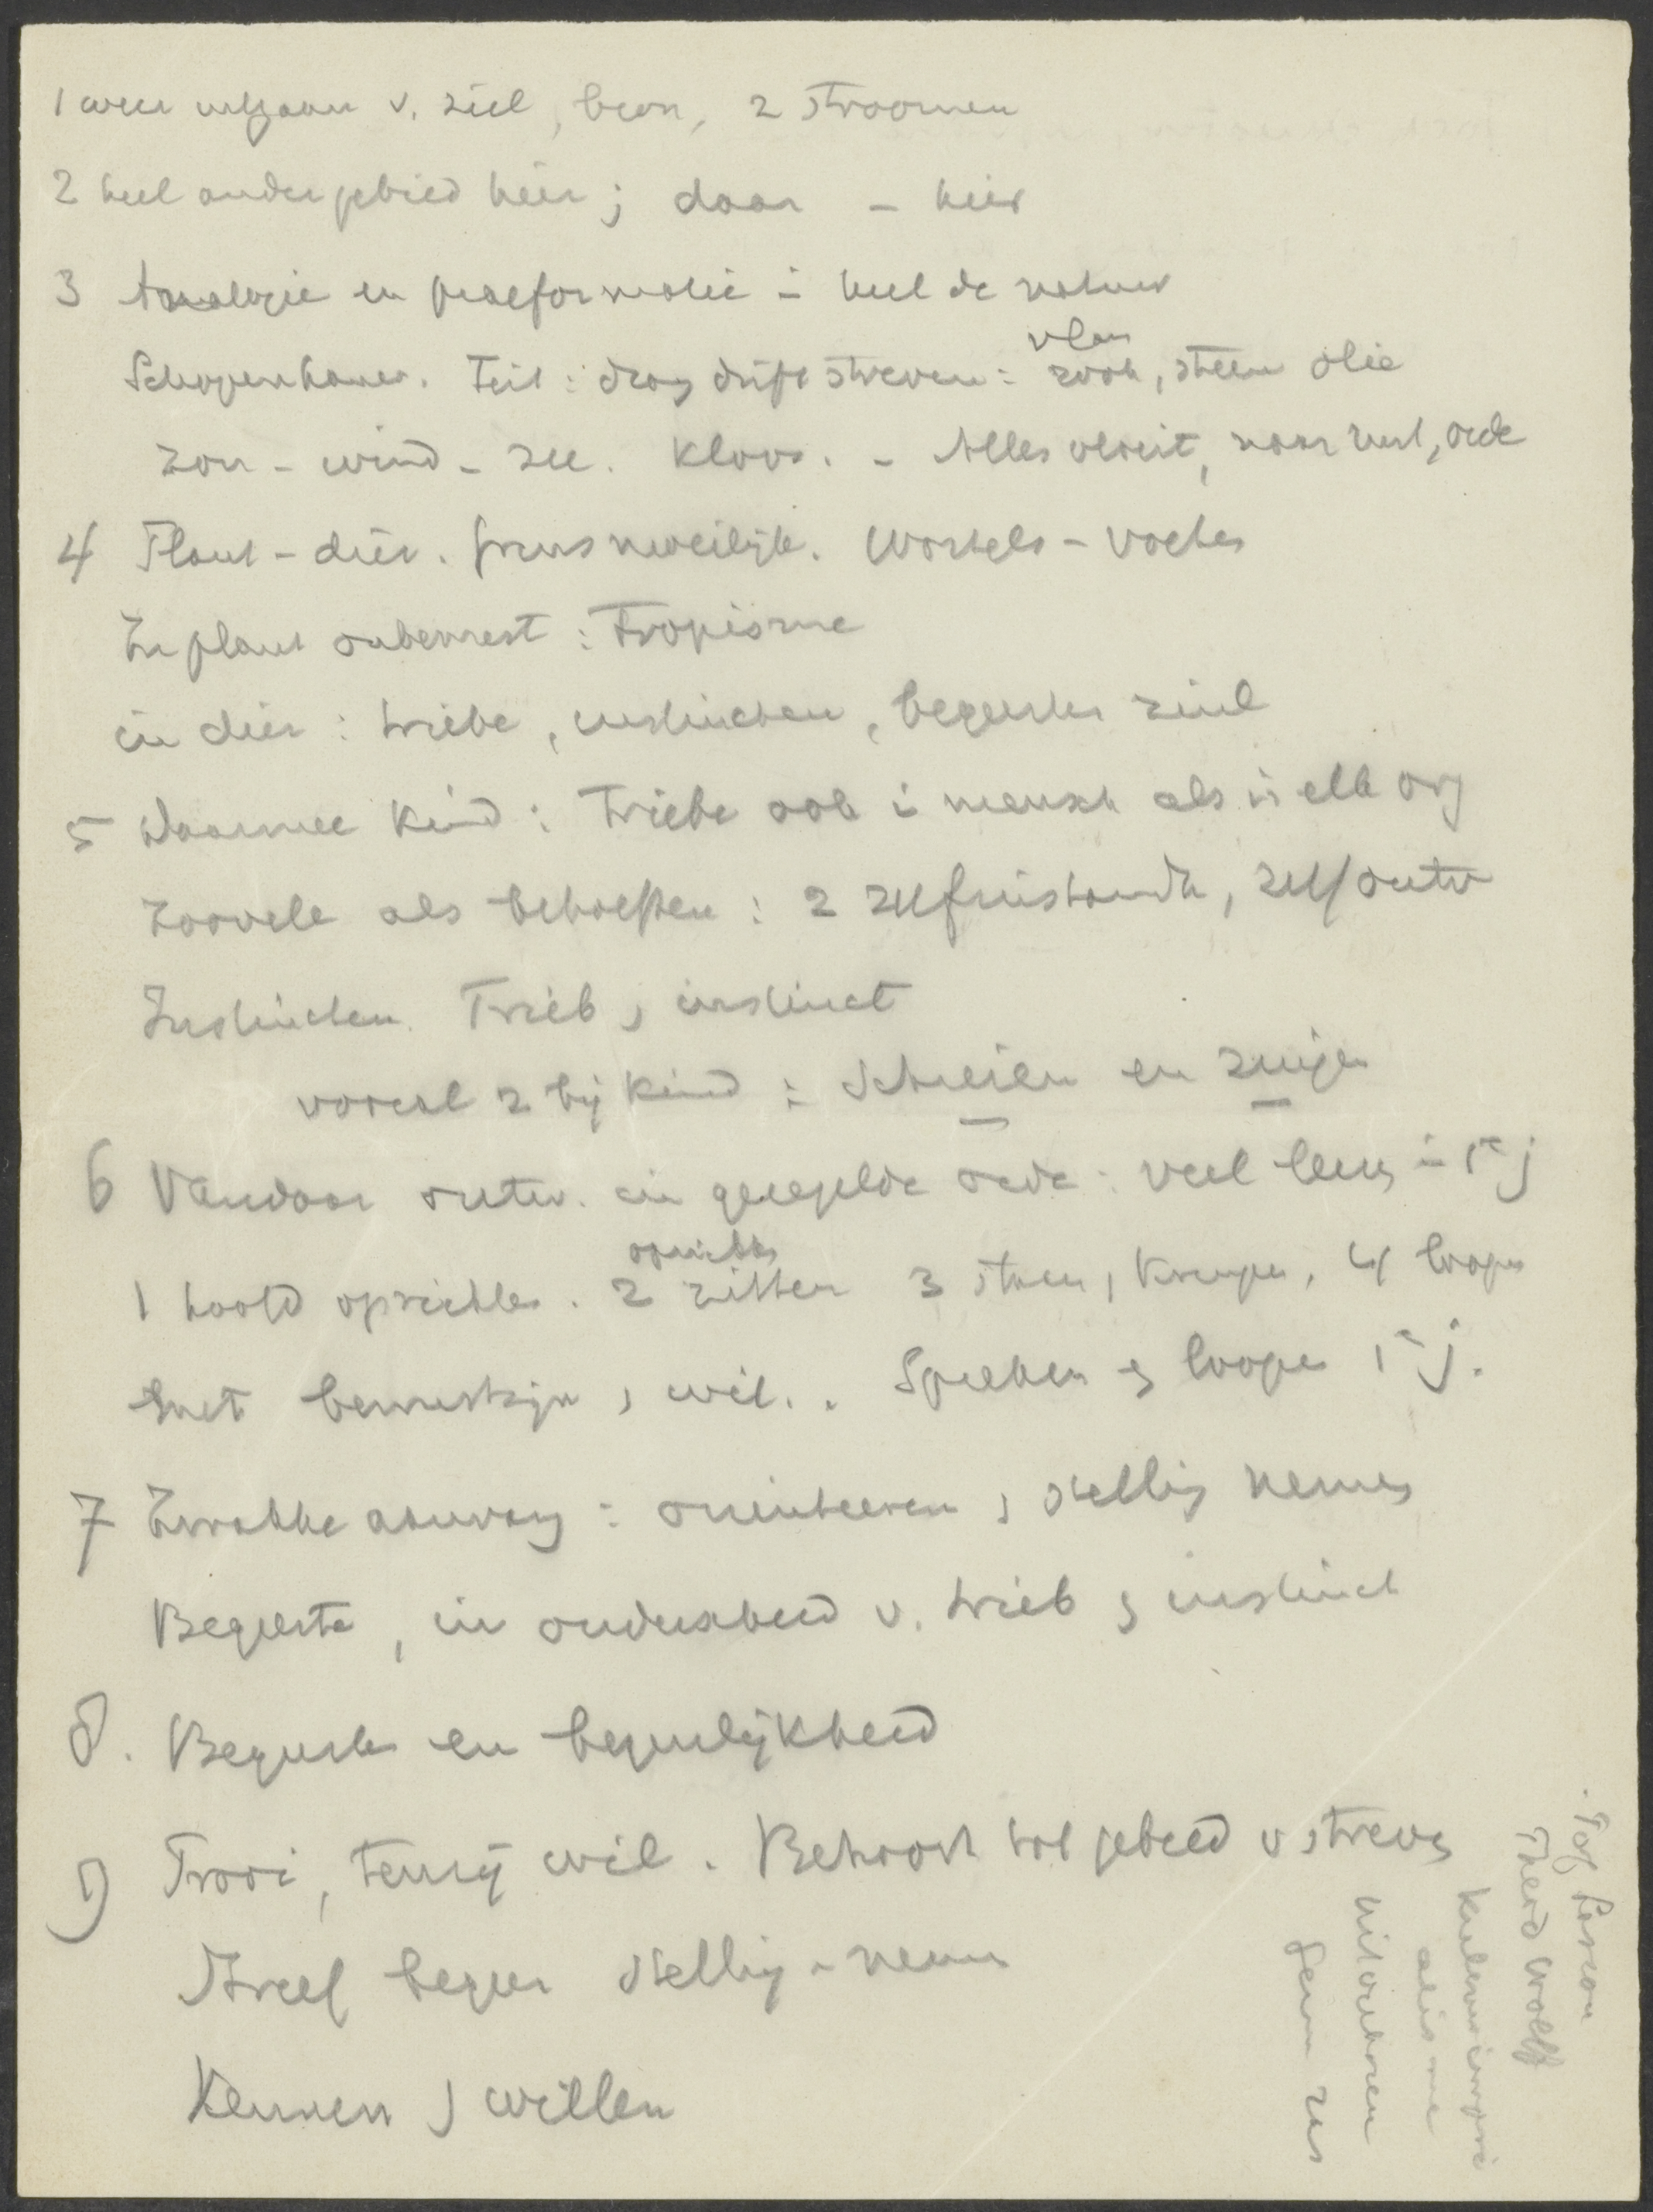 1 weer uitgaan v. ziel, bron, 2 stroomen
2 heel ander gebied hier; daar - hier
3 Analogie en praeformatie i heel de natuur
vlam
Schopenhauer. Feit: drang drift streven: rook, steen olie
zon - wind - zee. Kloos. - Alles vloeit, naar rust, orde
4 Plant - dier. grens moeilijk. Wortels - vocht
In plant onbewust: Tropisme
in dier: triebe, instincten, begeerten ziel
5 Waarmee kind: Triebe ook i mensch als in elk org
Zoovele als behoeften: 2 zelfinstandh, zelfontw
Instincten Trieb, instinct
vooral 2 bij kind: Schreien en zuigen
6 Vandaar ontw. in geregelde orde: veel i 1e j
1 hoofd oprichten. 2 zitten 3 staan, kruipen, 4 loopen
met bewustzijn, wil. . Spreken en loopen 1e j.
7 aanvang: orienteeren, stelling nemen
Begeerte, in onderscheid v. trieb en instinct
8. Begeerte en begeerlijkheid
9 Trooi, tenzij wil. Behoort tot gebied v streven
Streef begeer stelling - nemen
Kennen, willen
Theod Wolff